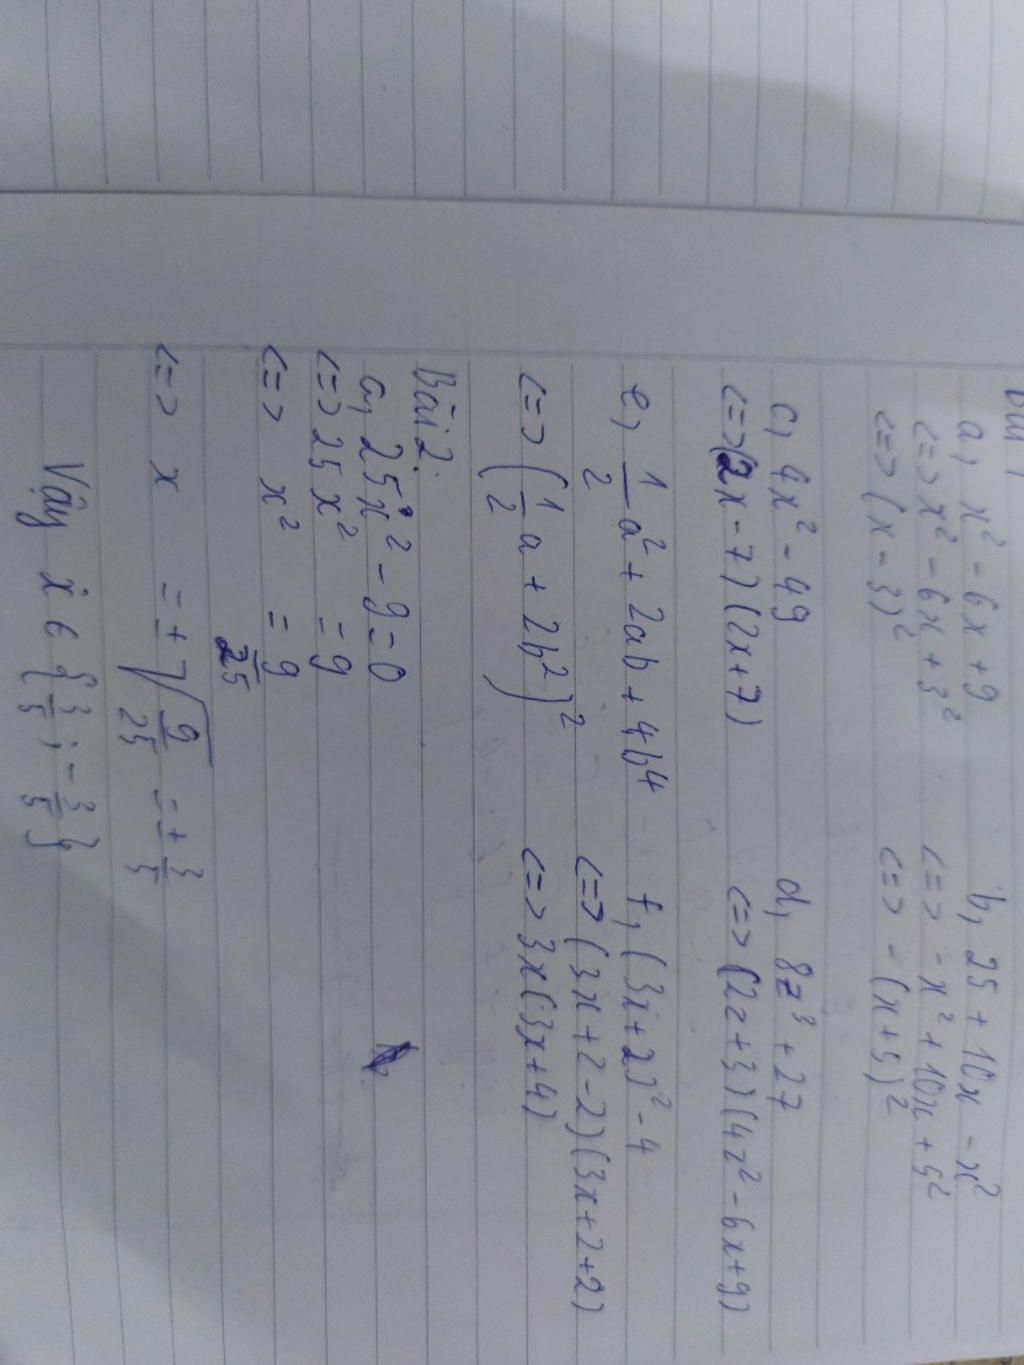 Bài 1
a, x² - 6x + 9
<=> x² - 6x + 3²
<=> (x - 3)²
b, 25 + 10x - x²
<=> - x² + 10x + 5²
<=> - (x + 5)²
c, 4x² - 49
<=> (2x - 7)(2x + 7)
d, 8z³ + 27
<=> (2z + 3)(4z² - 6x + 9)
e, 1/2 a² + 2ab + 4b⁴
<=> (1/2 a + 2b²)²
f, (3x + 2)² - 4
<=> (3x + 2 - 2)(3x + 2 + 2)
<=> 3x(3x + 4)
Bài 2:
a, 25x² - 9 = 0
<=> 25x² = 9
<=> x² = 9/25
<=> x = ±√(9/25) = ± 3/5
Vậy x ∈ {3/5 ; -3/5}